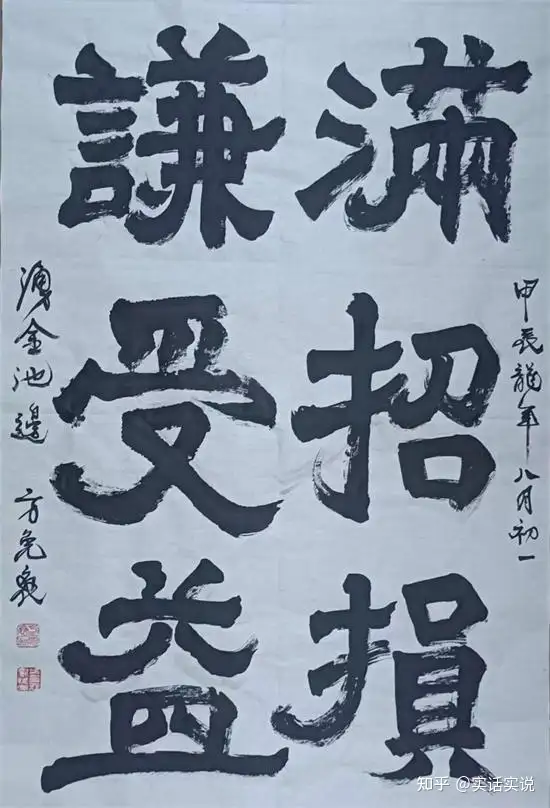 甲辰龍年八月初一
滿招損
謙受益
湧金池邊 方
知乎 @实话实说